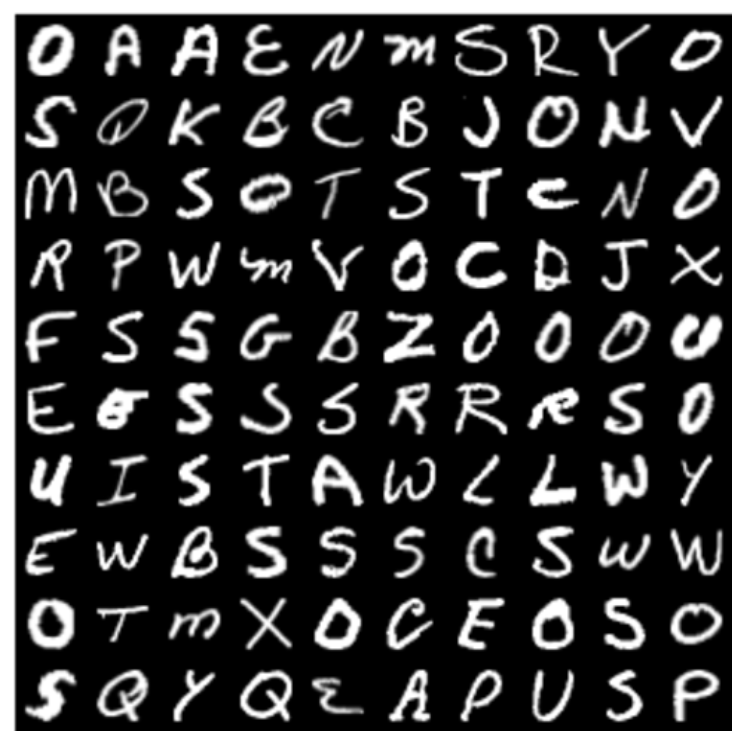 O A A E N m S R Y O
S O K B C B J O N V
M B S O T S T C N O
R P W m V O C D J X
F S S G B Z O O O U
E S S S R R R S O
U I S T A W L L W Y
E W B S S S C S W W
O T m X O C E O S O
S Q Y Q E A P U S P